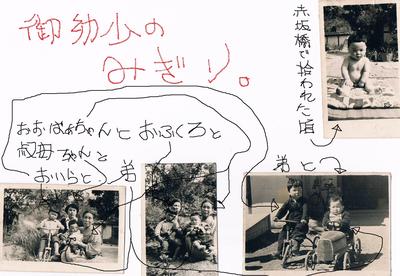 御幼少の
みぎり。
赤坂橋で拾われた頃
おおばあちゃんとおふくろと
叔母ちゃんと
おいらと
弟
弟と